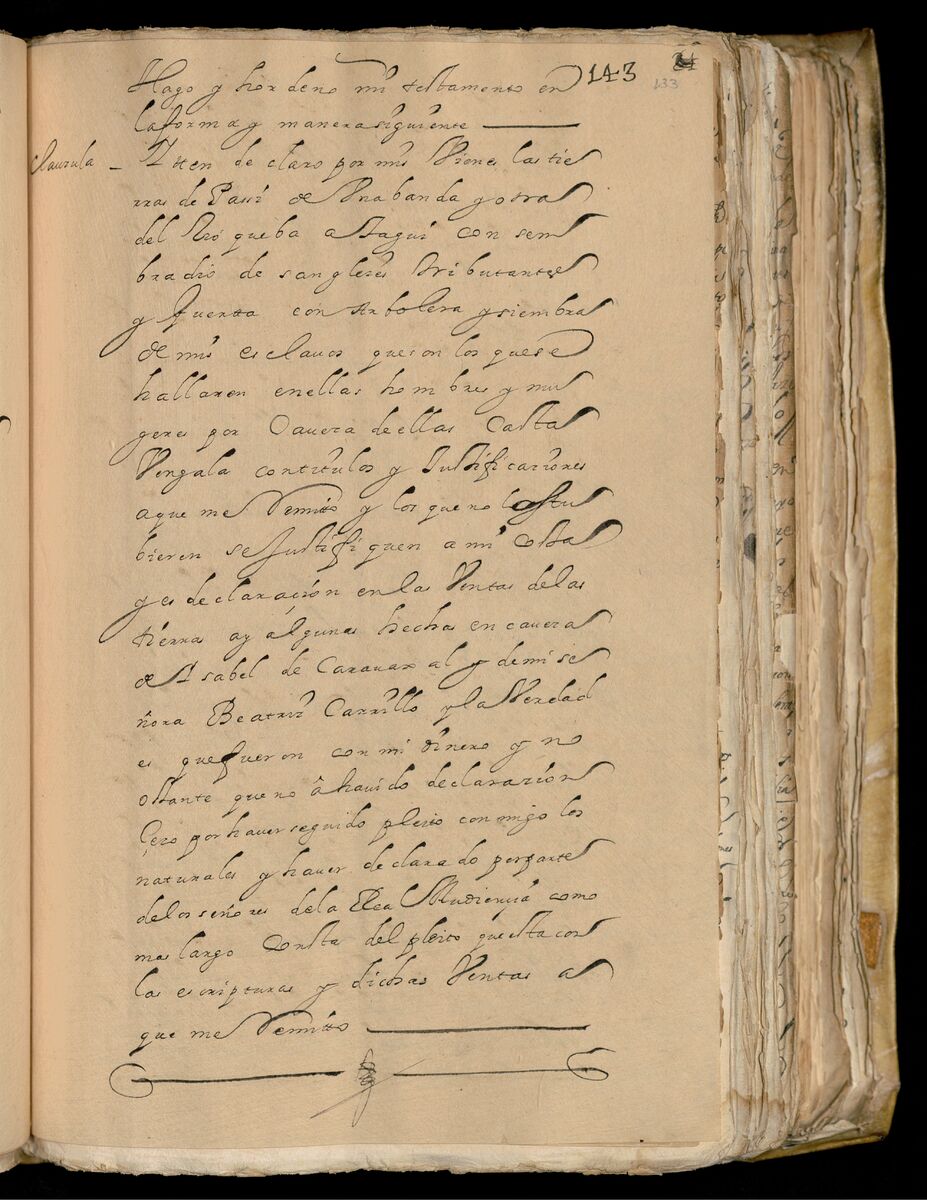 143
133
Hago y hordeno mi testamento en
la forma y manera siguiente
Clausula
Itten declaro por mis Vienes las tie
rras de Passi de Una banda y otra
del Rio que ba a Pagui con sem
bradio de sangleres tributantes
y huerta con Arbolera y siembra
de mis esclauos que son los que se
hallaren en ellas hombres y mu
geres por Cauera de ellas Casta
Vengala con titulos y Justificaziones
a que me Remitto y los que no lo estu
bieren se Justifiquen a mi Costa
y es declaraçion en las Ventas de las
tierras ay algunas hechas en cauera
de Isabel de Carauaxal y de mi se
ñora Beatriz Carrillo y la Verdad
es que fueron con mi dinero y no
ostante que no â havido declarazion
Pero por haver seguido pleito con migo los
naturales y haver declarado por parte
de los señores de la Real Audiençia como
mas largo Consta del pleito que esta con
las escripturas y dichas Ventas a
que me Remitto